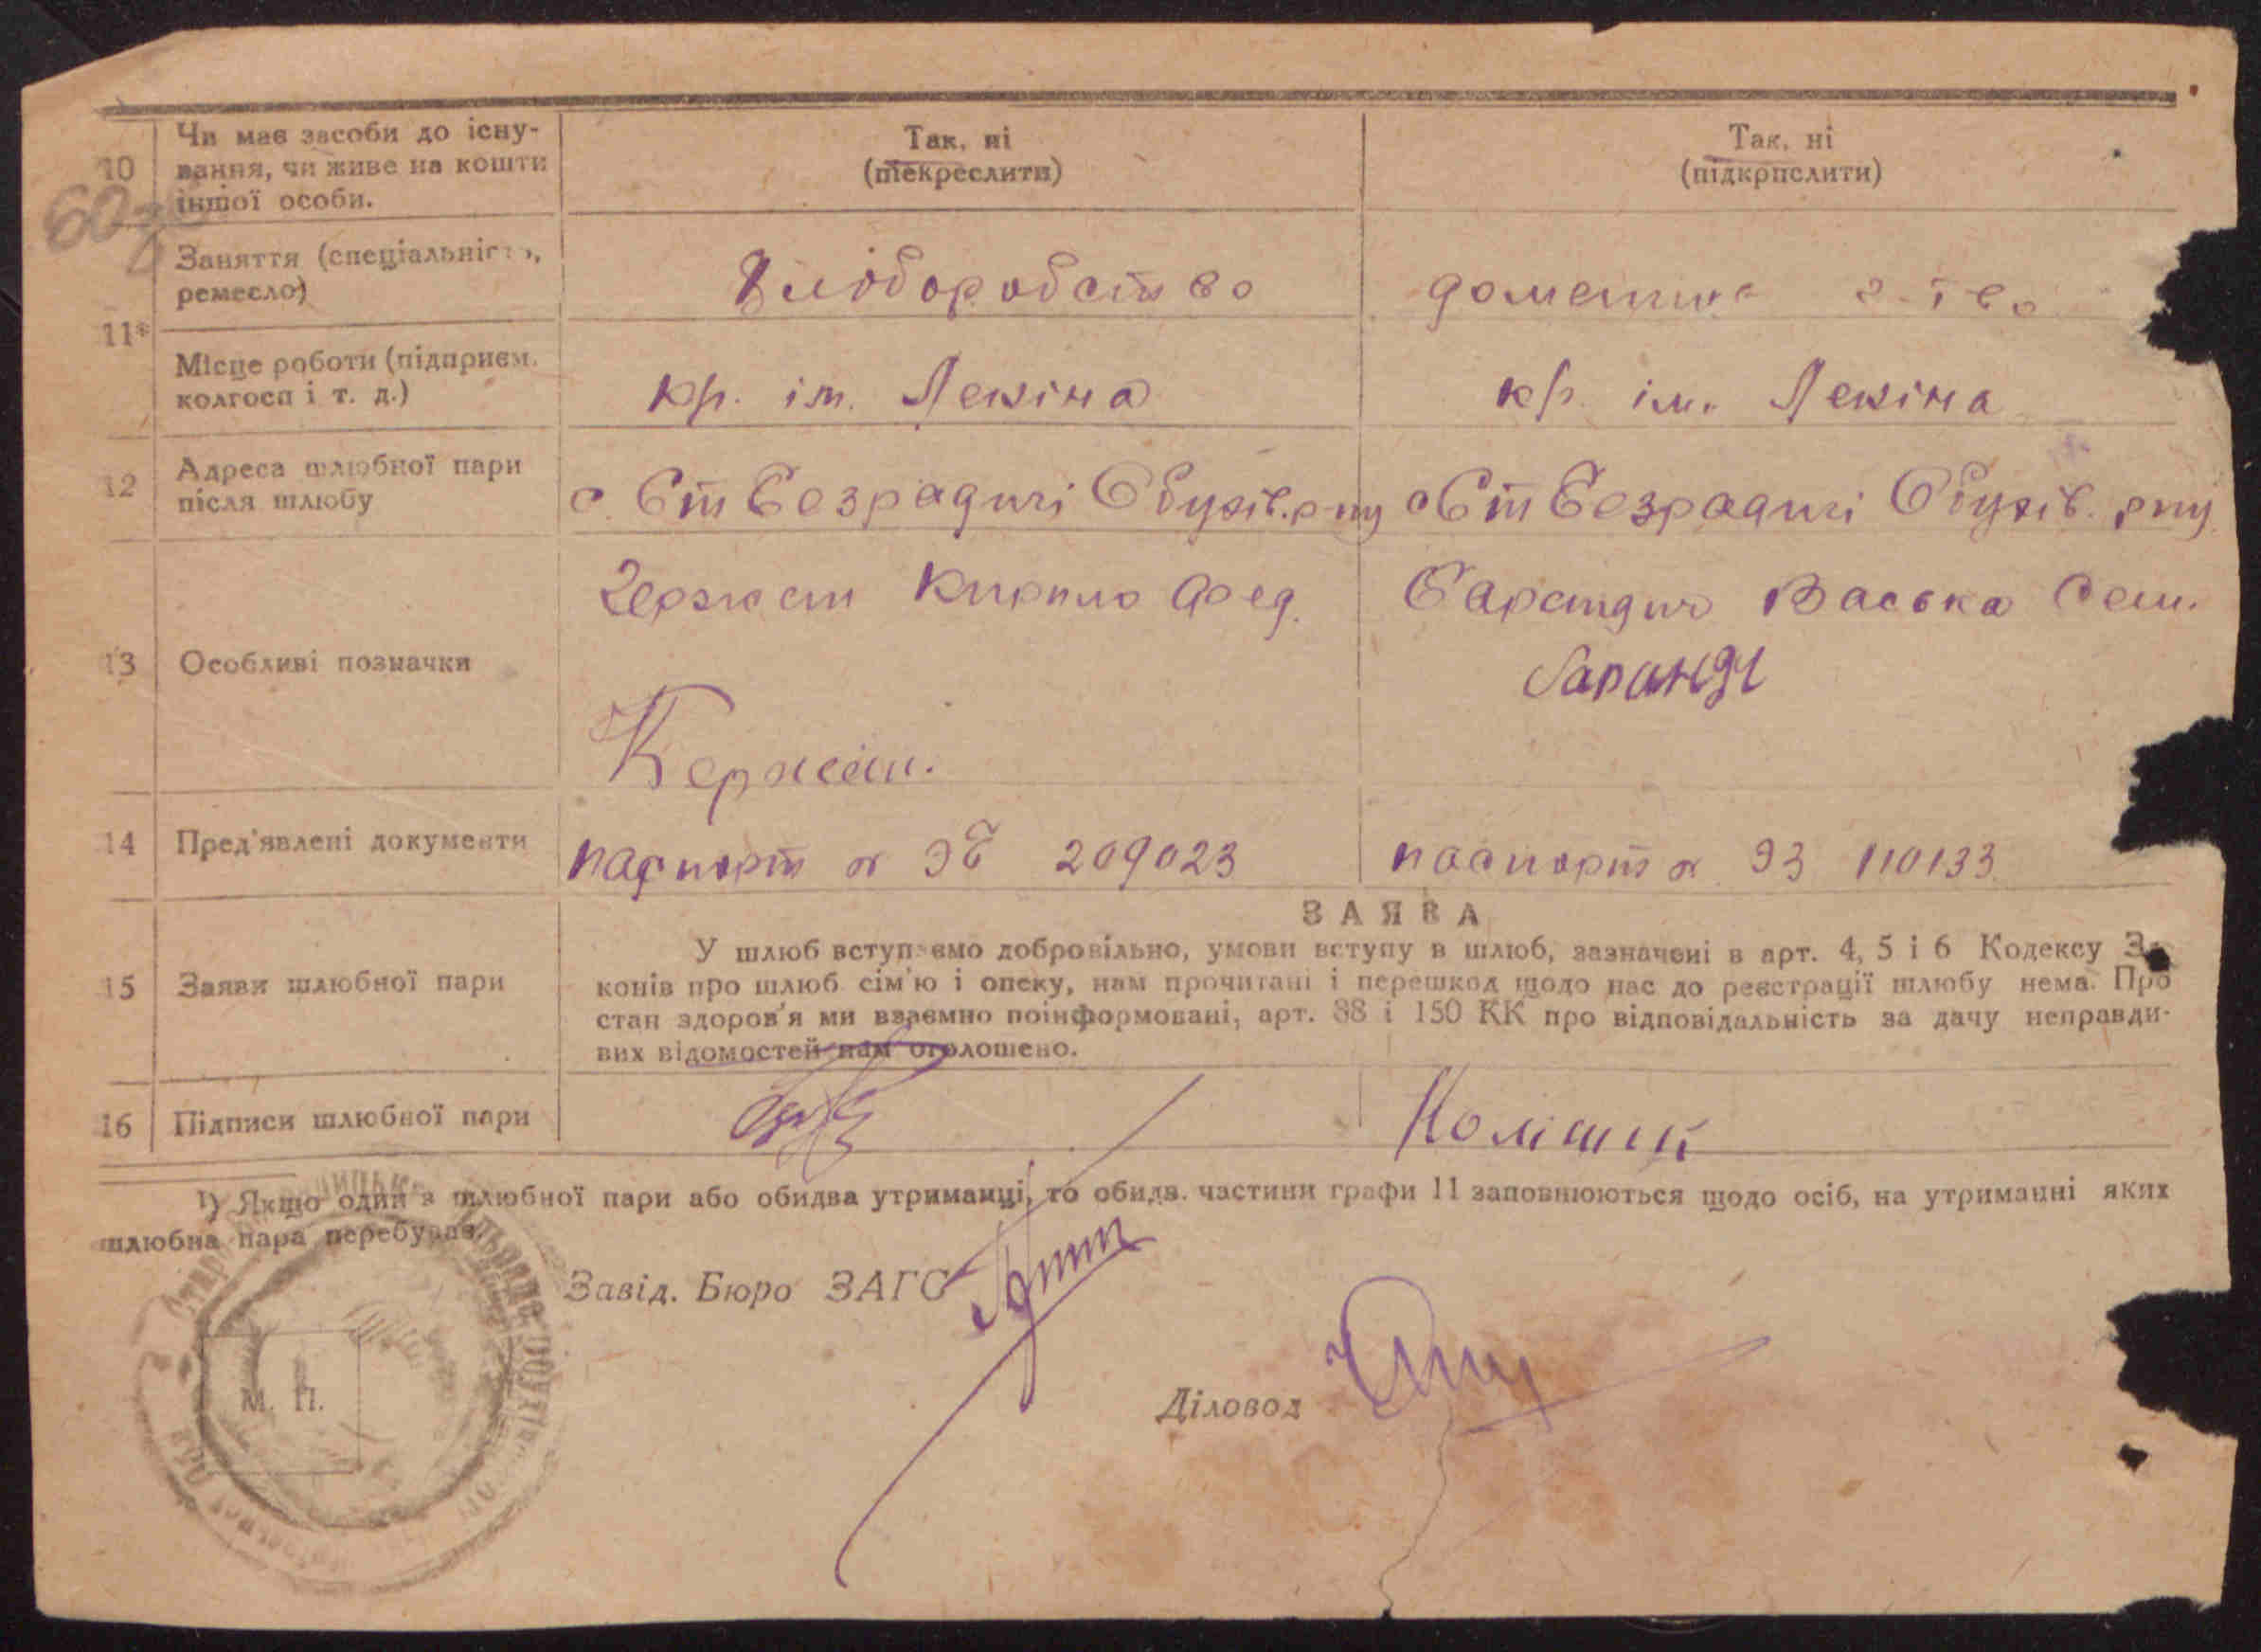 10 Чи має засоби до існу- Так, ні Так, ні
вання, чи живе на кошти (підкреслити) (підкрпслити)
іншої особи.
60
Заняття (спеціальність,
ремесло) Хліборобство домашнє
11*
Місце роботи (підприєм.
колгосп і т. д.) кр. ім. Леніна кр. ім. Леніна
12 Адреса шлюбної пари
після шлюбу с. Ст Безрадичі Обухів. р-ну с Ст Безрадичі Обухів. рну
Кирило Фед. Васька Сем.
13 Особливі позначки
14 Пред'явлені документи паспорт № 209023 паспорт № 93 110133
ЗАЯВА
У шлюб вступаємо добровільно, умови вступу в шлюб, зазначені в арт. 4, 5 і 6 Кодексу За-
15 Заяви шлюбної пари конів про шлюб сім'ю і опеку, нам прочитані і перешкод щодо нас до реєстрації шлюбу нема. Про
стан здоров'я ми взаємно поінформовані, арт. 88 і 150 КК про відповідальність за дачу неправди-
вих відомостей нам оголошено.
16 Підписи шлюбної пари
1) Якщо один з шлюбної пари або обидва утриманці, то обидв. частини графи 11 заповнюються щодо осіб, на утриманні яких
шлюбна пара перебуває.
Завід. Бюро ЗАГС
М. П.
Діловод